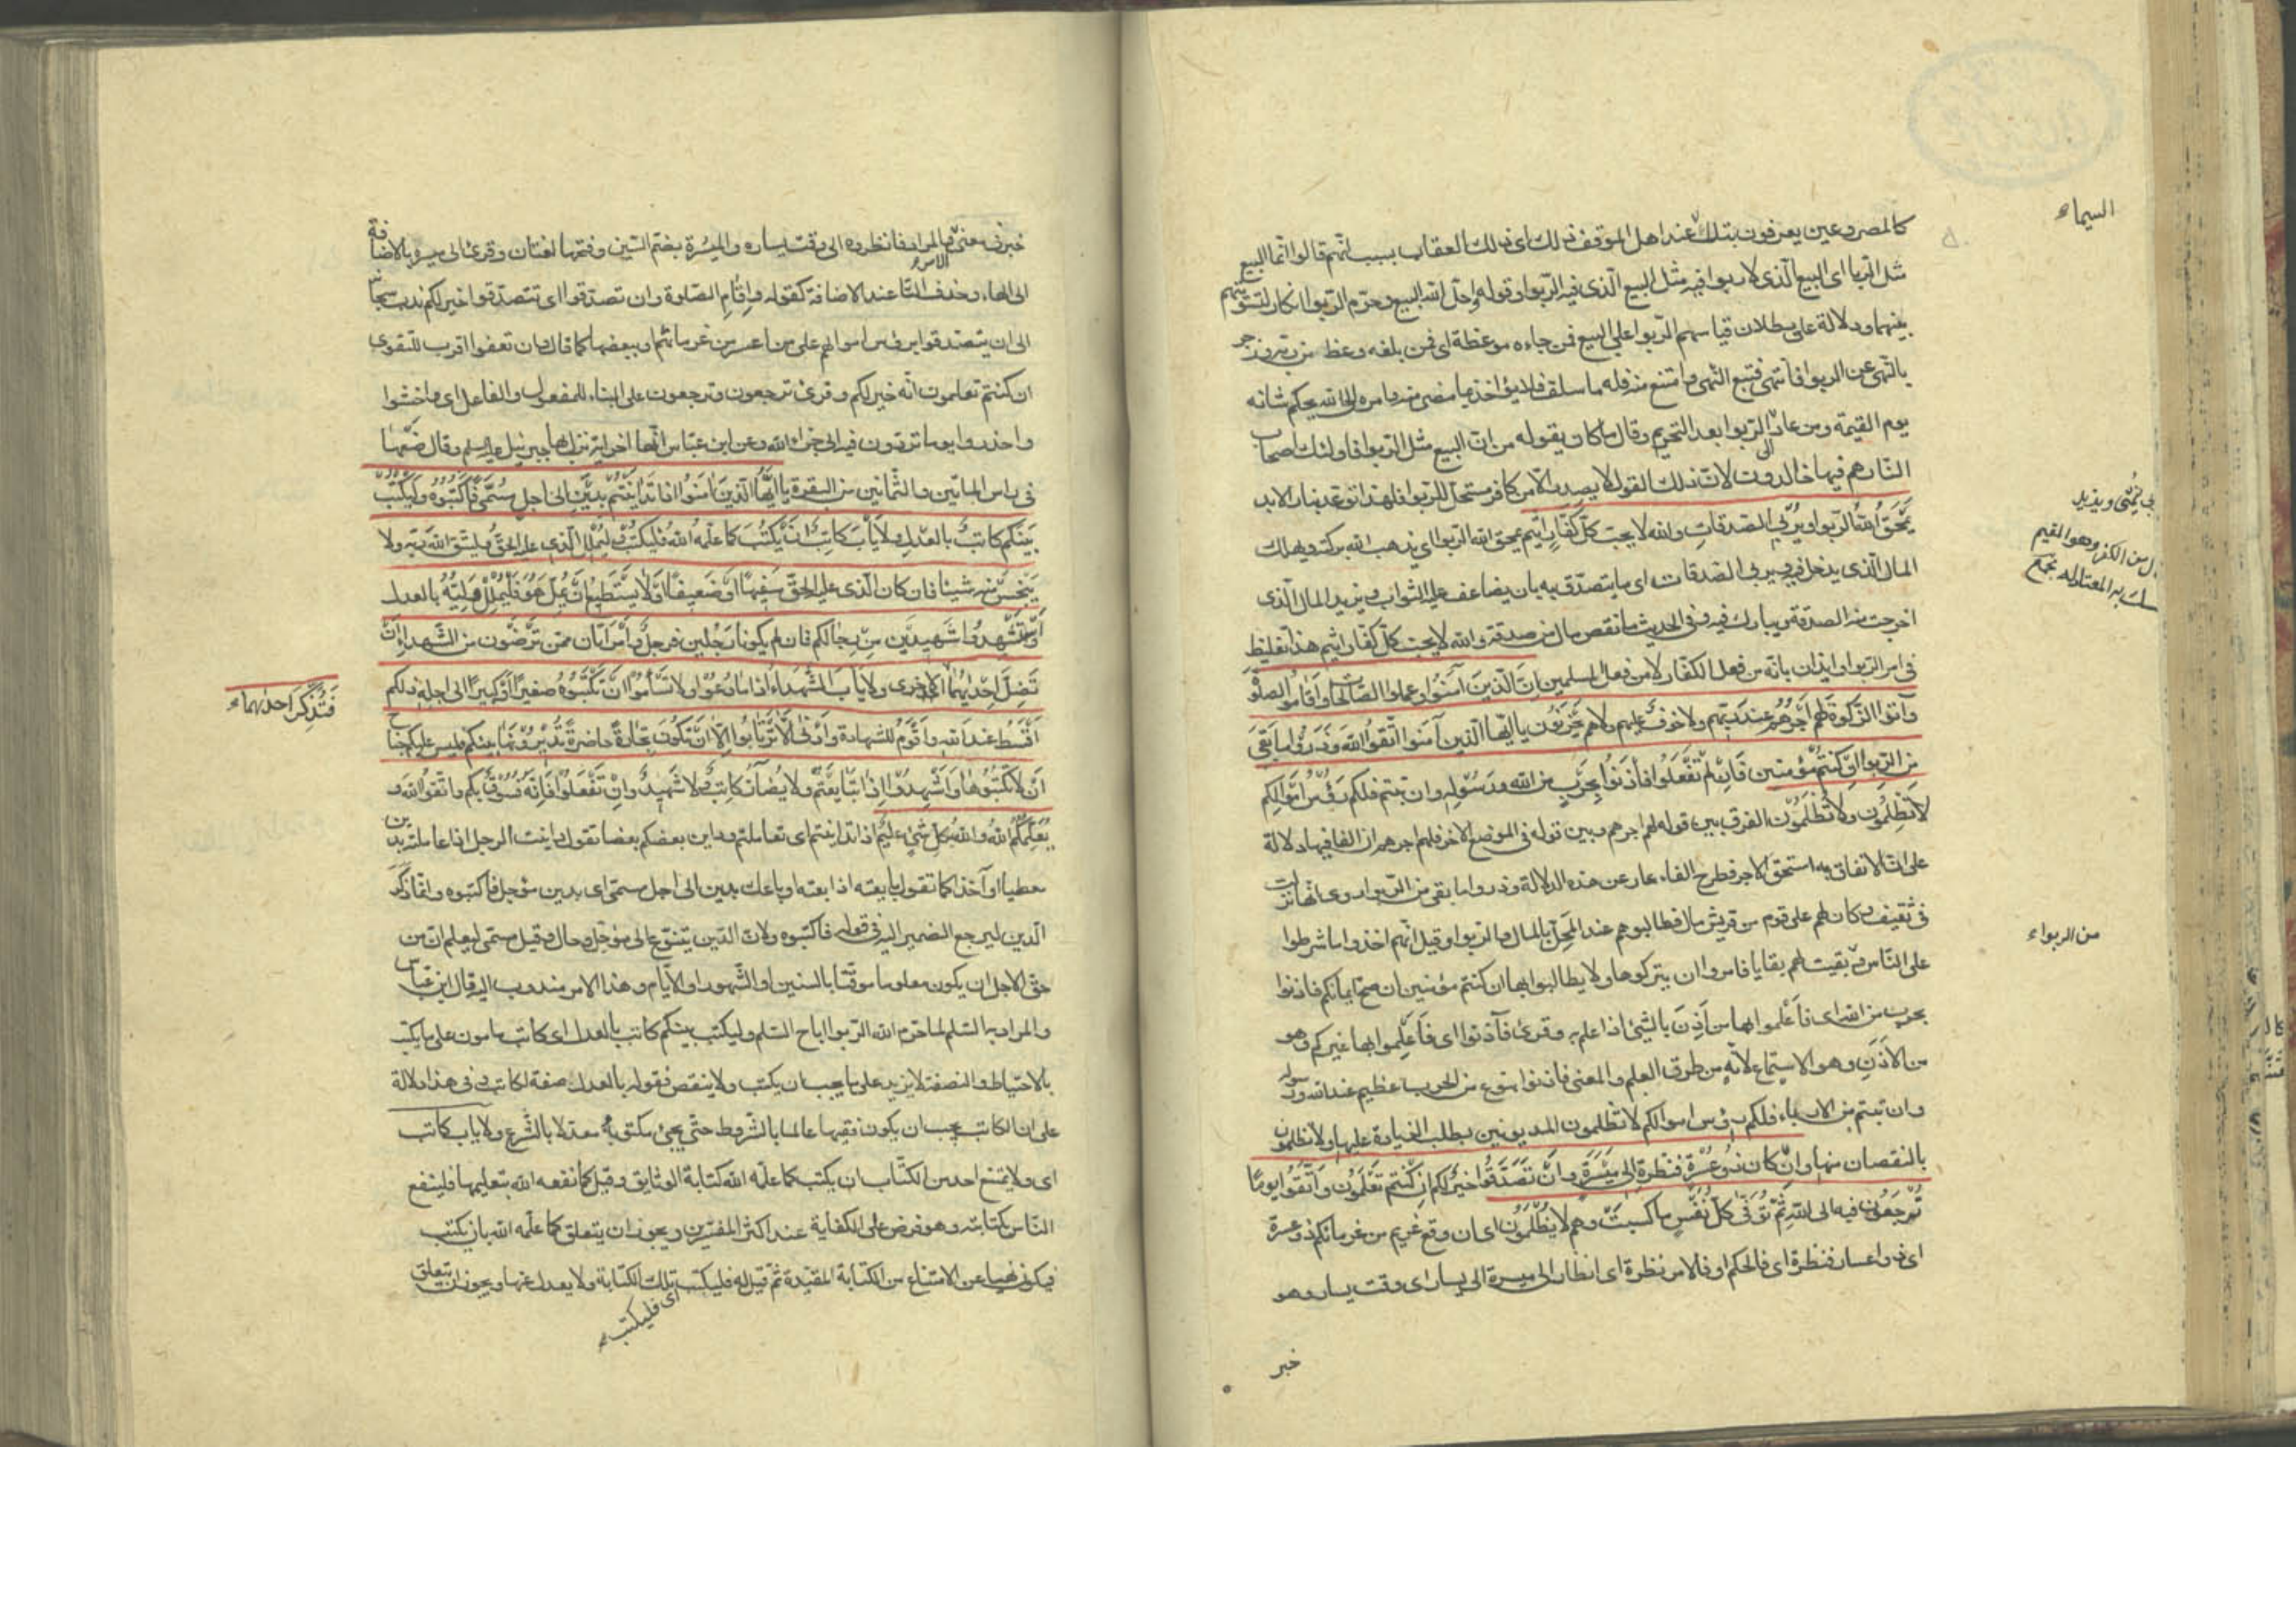 كالمصروعين يعرفون بتلك عند اهل الموقف ذلك اى ذلك العقاب بسبب انّهم قالوا انّما البيع
السيماء
مثل الرّبا اى البيع الّذى لا ربوا فيه مثل البيع الّذى فيه الرّبوا وقوله واحلّ الله البيع وحرّم الرّبوا انكار لتسويتهم
بينهما ودلالة على بطلان قياسهم الرّبوا على البيع فمن جاءه موعظة اى فمن بلغه وعظ من ربه وزجر
بالنّهى عن الربوا فانتهى فتبع النّهى وامتنع منه فله ما سلف فلا يؤاخذ بما مضى منه وامره الى الله يحكم شانه
يوم القيمة ومن عاد الى الرّبوا بعد التحريم وقال ما كان يقوله من انّ البيع مثل الرّبوا فاولئك اصحاب
النّار هم فيها خالدون لانّ ذلك القول لا يصدر الّا من كافر مستحلّ للرّبوا فلهذا توعّد بنار الابد
يَمْحَقُ اللهُ الرّبوا ويُرْبِي الصّدقاتِ والله لا يحبّ كلّ كفّارٍ اثيم يمحق الله الرّبوا اى يذهب الله بركته ويهلك
المال الّذى يدخل فيه ويربى الصّدقات اى ما يتصدّق به بان يضاعف عليه الثواب ويزيد المال الّذى
اخرجت منه الصدقة ويبارك فيه وفى الحديث ما نقص مال من صدقة والله لا يحبّ كلّ كفّار اثيم هذا تغليظ
فى امر الرّبوا وايذان بانّه من فعل الكفّار لا من فعل المسلمين اِنَّ الّذينَ آمَنُوا وعملوا الصّالحات واَقاموا الصلوة
وآتوا الزّكوةَ لهم اَجْرُهُم عند ربّهم ولا خوفٌ عليهم ولا هم يَحْزَنُون يا ايّها الّذين آمنوا اتّقوا اللهَ وَذَرُوا ما بَقِيَ
مِنَ الرّبوا اِنْ كنتم مُؤْمنين فَاِنْ لَمْ تَفْعَلُوا فأذَنُوا بِحَرْبٍ من الله ورَسُولِه وان تبتم فلكم رُؤُسُ اَمْوالِكم
لا تَظْلِمُون ولا تُظْلَمُون الفرق بين قوله لهم اجرهم وبين قوله فى الموضع الآخر فلهم اجرهم انّ الفا فيها دلالة
على انّ الانفاق به استحقّ الاجر وطرح الفاء عار عن هذه الدلالة وذروا ما بقى من الرّبوا روى انّها نزلت
فى ثقيف وكان لهم على قوم من قريش مال فطالبوهم عند المحلّ بالمال والربوا وقيل انّهم اخذوا ما شرطوا
على النّاس من الربواء وبقيت لهم بقايا فامروا ان يتركوها ولا يطالبوا بها ان كنتم مؤمنين ان صحّ ايمانكم فاذنوا
بحرب من الله اى فَاعْلموا بها من اَذِنَ بالشيئ اذا علم به وقرئ فآذنوا اى فَاَعْلِموا بها غيركم وهو
من الاَذَنِ وهو الاستماع لانّه من طرق العلم والمعنى فاذنوا بنوع من الحرب عظيم عند الله ورسوله
وان تبتم من الارباء فلكم رؤس اموالكم لا تظلمون المديونين بطلب الزيادة عليها ولا تظلمون
بالنقصان منها وَاِنْ كان ذو عُسْرَةٍ فَنَظِرَةٌ اِلى مَيْسَرَةٍ وَاَنْ تَصَدَّقُوا خَيْرٌ لكم اِن كُنْتم تَعْلَمُون وَاتَّقُوا يومًا
تُرْجَعُون فيه الى اللهِ ثمّ تُوَفّى كلّ نَفْسٍ ما كسبتْ وهم لا يُظْلَمُون اى ان وقع غريم من غرمائكم ذو عسرة
اى ذو اعسار فنظرة اى فالحكم او فالامر نظرة اى انظار الى ميسرة الى يسار اى وقت يسار وهو
خبر
خبر فى معنى الامر والمراد فانظروه الى وقت يساره والميسُرة بضمّ السّين وفتحها لغتان وقرئ الى ميسره بالاضافة
الى الهاء وحذف التّا عند الاضافة كقوله واِقامِ الصّلوة وان تصدّقوا اى تتصدّقوا خير لكم ندب سبحانه
الى ان يتصدّقوا برؤس اموالهم على من اعسر من غرمائهم او ببعضها كما قال وان تعفوا اقرب للتقوى
ان كنتم تعلمون انّه خير لكم وقرئ ترجعون وترجعون على البناء للمفعول والفاعل اى واخشوا
واحذروا يوما تردّون فيه الى جزاء الله وعن ابن عبّاس انّها آخر آية نزل بها جبرئيل عليه السلم وقال ضعها
فى راس المأتين والثّمانين من البقرة يا اَيُّهَا الّذينَ آمَنُوا اِذا تَدايَنْتُمْ بِدَيْنٍ اِلى اَجلٍ مُسَمًّى فَاكْتُبُوهُ وَلْيَكْتُبْ
بَيْنَكم كاتِبٌ بالعَدْلِ ولا يَأْبَ كاتِبٌ اَنْ يَكْتُبَ كما علّمه اللهُ فَلْيَكْتُبْ وَلْيُمْلِلِ الّذى عليه الحَقُّ وليتّق الله ربّه ولا
يَبْخَسْ منه شيئا فان كان الّذى عليه الحقّ سَفِيهًا اَوْ ضَعيفًا اَوْ لا يَسْتَطيعُ اَنْ يُمِلَّ هُوَ فَلْيُمْلِلْ وَلِيُّهُ بالعدل
وَاسْتَشْهِدُوا شَهيدَيْنِ مِنْ رِجالِكم فان لم يكونا رَجُلينِ فرجلٌ وامْرَأتان ممّن تَرْضَوْن من الشّهداءِ اَنْ
تَضِلَّ اِحْديٰهُما فَتُذَكِّرَ احديهما الاخرى ولا يَأْبَ الشُّهَداءُ اِذا ما دُعُوْا ولا تَسْأَمُوا اَنْ تَكْتُبُوهُ صغيرًا اَوْ كبيرًا الى اجله ذلكم
اَقْسَطُ عندَ الله واَقْوَمُ للشهادة واَدْنٰى اَلّا تَرْتابُوا اِلّا اَنْ تَكُونَ تِجارَةً حاضِرَةً تُديرُونَها بينكم فليس عليكم جناح
اَنْ لا تَكْتُبُوها وَاَشْهِدُوا اِذا تَبايَعْتُم ولا يُضارَّ كاتِبٌ ولا شَهيدٌ وَاِنْ تَفْعَلُوا فَاِنَّه فُسُوقٌ بكم واتّقوا الله و
يُعَلِّمُكُمُ اللهُ واللهُ بكلِّ شَيْئٍ عليمٌ اذا تداينتم اى تعاملتم وداين بعضكم بعضا تقول داينت الرجل اذا عاملته بدين
معطيا او آخذا كما تقول بايعته اذا بعته او باعك بدين الى اجل مسمّى اى بدين مؤجل فاكتبوه وانّما ذكر
الّدين ليرجع الضمير اليه فى قوله فاكتبوه ولانّ الدّين يتنوّع الى مؤجّل وحال وقيل مسمّى ليعلم انّ من
حقّ الاجل ان يكون معلوما موقّتا بالسنين او الشّهور او الايّام وهذا الامر مندوب اليه قال ابن عبّاس
والمراد به السّلم لما حرّم الله الرّبوا اباح السّلم وليكتب بينكم كاتب بالعدل اى كاتب مامون على ما يكتب
بالاحتياط والنصفة لا يزيد على ما يجب ان يكتب ولا ينقص فقوله بالعدل صفة لكاتب وفى هذا دلالة
على ان الكاتب يجب ان يكون فقيها عالما بالشّروط حتّى يجئ مكتوبه معدّلا بالشّرع ولا ياب كاتب
اى ولا يمتنع احد من الكتّاب ان يكتب كما علّمه الله كتابة الوثايق وقيل كما نفعه الله بتعليمها فلينفع
النّاس بكتابته وهو فرض على الكفاية عند اكثر المفسّرين ويجوز ان يتعلق كما علّمه الله بان يكتب
فيكون نهيا عن الامتناع من الكتابة المقيّدة ثمّ قيل له فليكتب تلك الكتابة ولا يعدل عنها ويجوز ان يتعلق
اى فليكتب